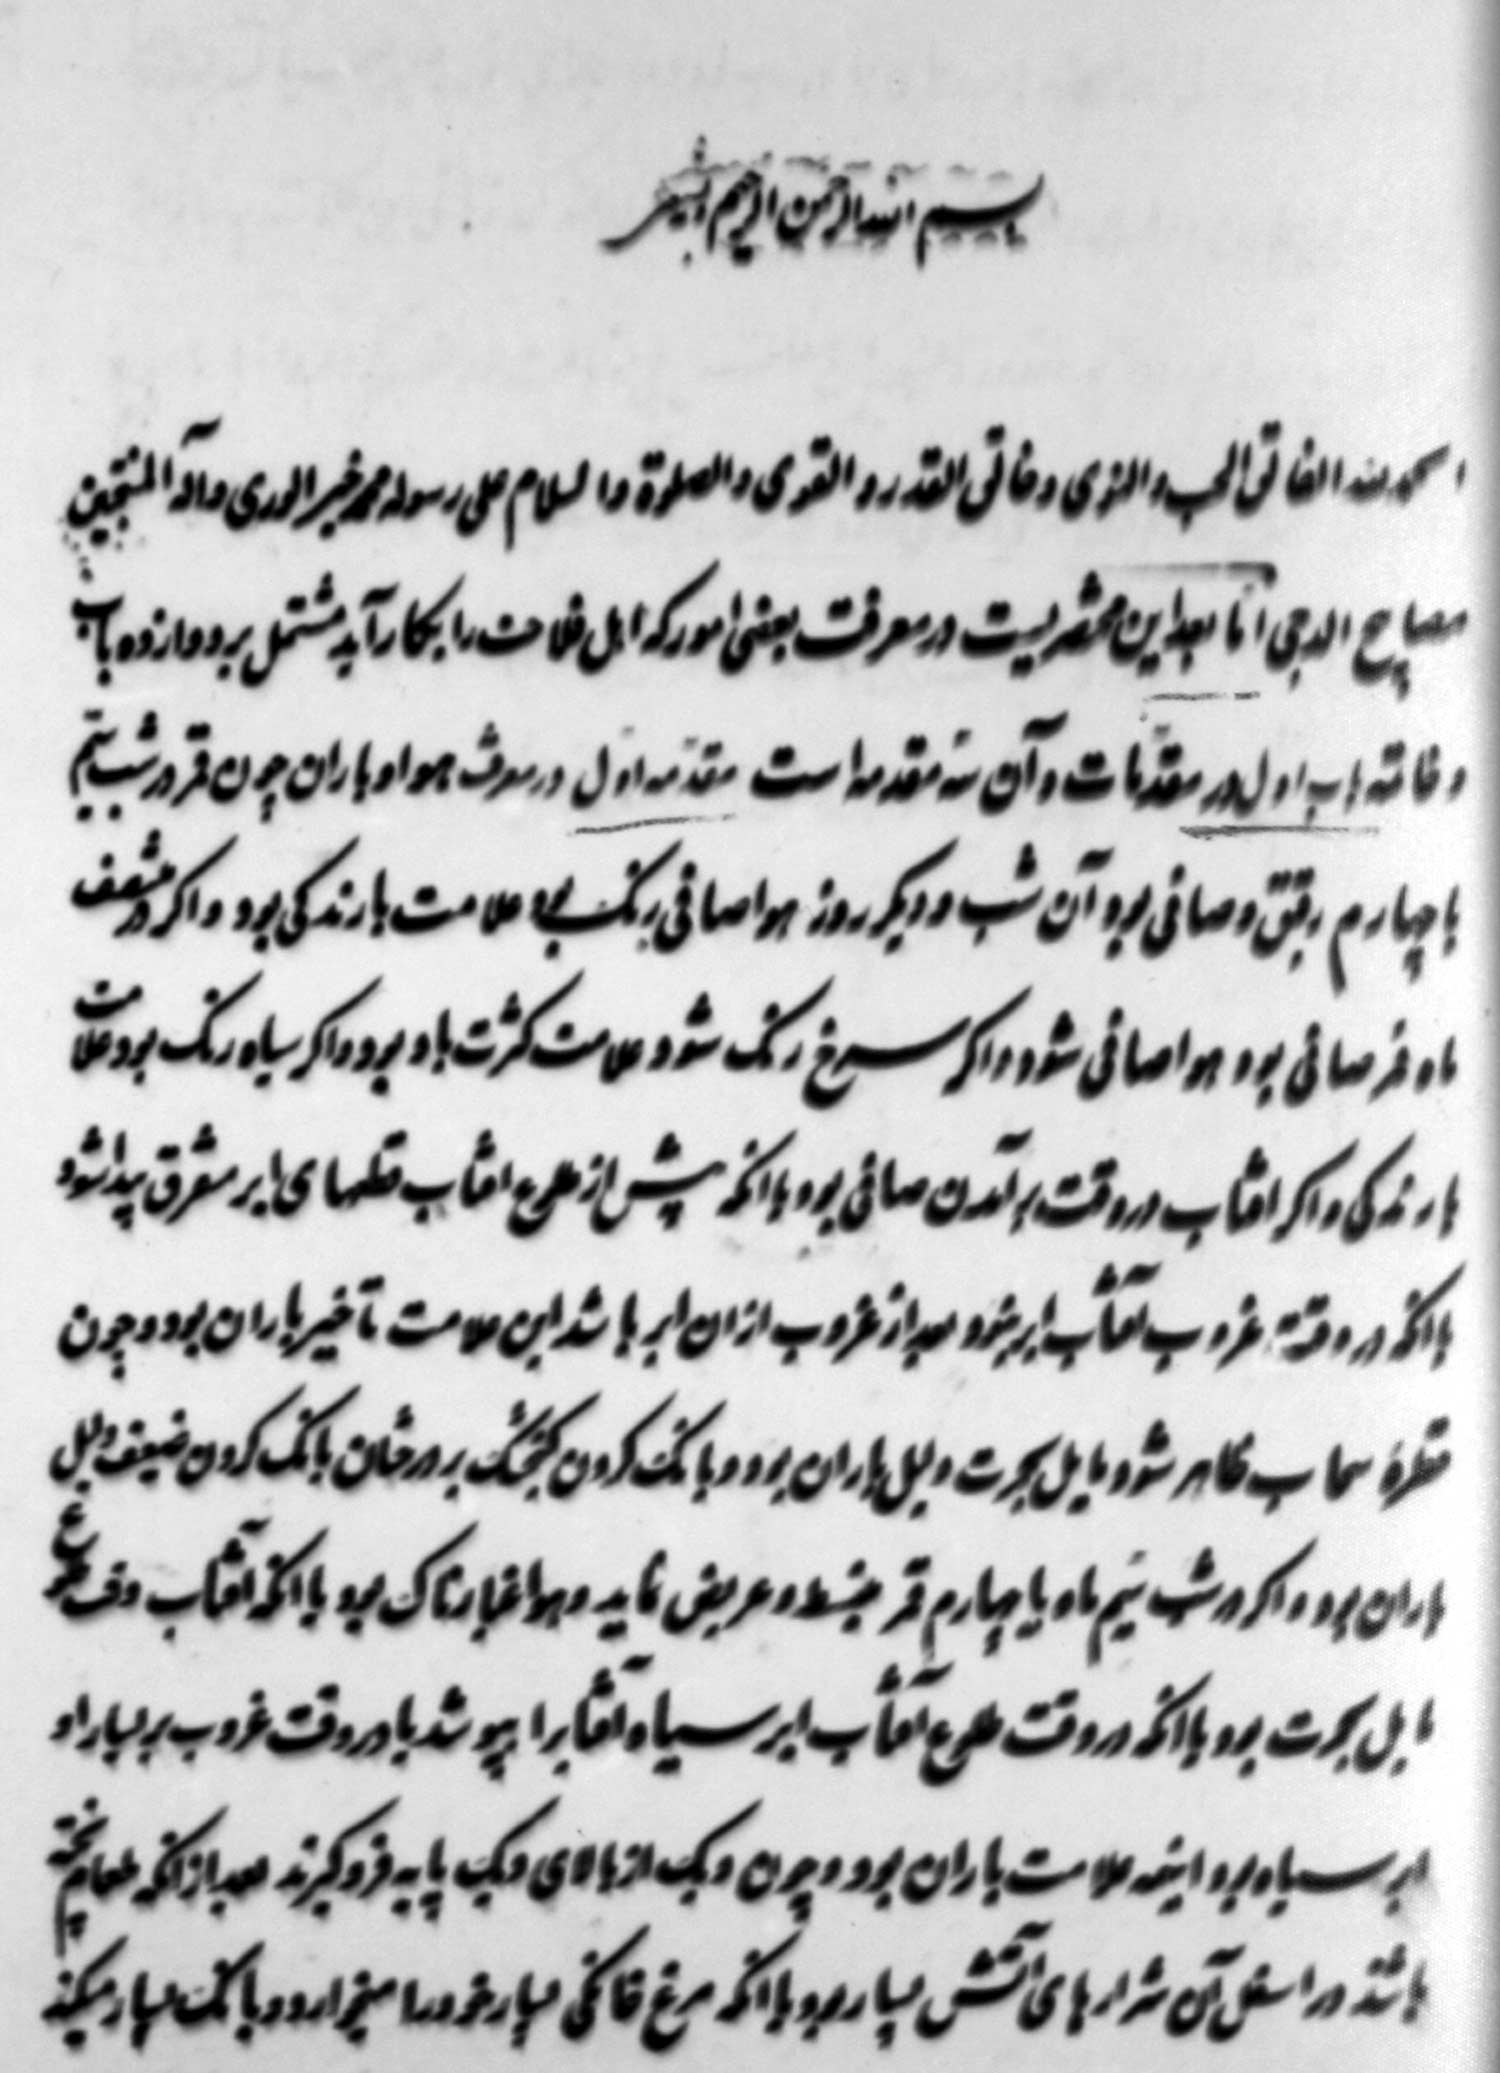 بسم الله الرحمن الرحیم
الحمد لله الفالق الحب والنوی و خالق القدر و القوی و الصلوة و السلام علی رسوله محمد خیر الوری و آله المنتجبین
مصابیح الدجی اما بعد این مختصریست در معرفت بعضی امور که اهل فلاحت را بکار آید مشتمل بر دوازده باب
و خاتمه باب اول در مقدمات و آن سه مقدمه است مقدمه اول در معرفت هوا و باران چون قمر در شب سیم
یا چهارم رقیق و صافی بود آن شب و دیگر روز هوا صافی رنگ بود علامت بارندگی بود و اگر در منتصف
ماه قمر صافی بود هوا صافی شود و اگر سرخ رنگ شود علامت کثرت باد بود و اگر سیاه رنگ بود علامت
بارندگی و اگر افتاب در وقت برآمدن صافی بود یا انکه پیش از طلوع افتاب قطهای ابر متفرق پیدا شود
یا انکه در وقت غروب آفتاب ابر بود و بعد از غروب ازان ابر باشد این علامت تأخیر باران بود و چون
سحاب ظاهر شود مایل بحمرت دلیل باران بود و بانک کردن کنجشک بر درختان بانک کردن ضعیف دلیل
باران بود و اگر در شب سیم ماه یا چهارم قمر و عریض نماید و هوا غبارناک بود یا انکه آفتاب وقت طلوع
مایل بحمرت بود یا انکه در وقت طلوع آفتاب ابر سیاه آفتابرا بپوشد یا در وقت غروب بر یسار او
ابر سیاه بود اینهمه علامت باران بود و چون دیک از بالای دیک پایه فرو کیرند بعد از انکه طعام پخته
باشد در اسفل آن شرارهای آتش بسیار بود یا انکه مرغ خانکی بسیار خود را میخوارد و بانک بسیار میکند